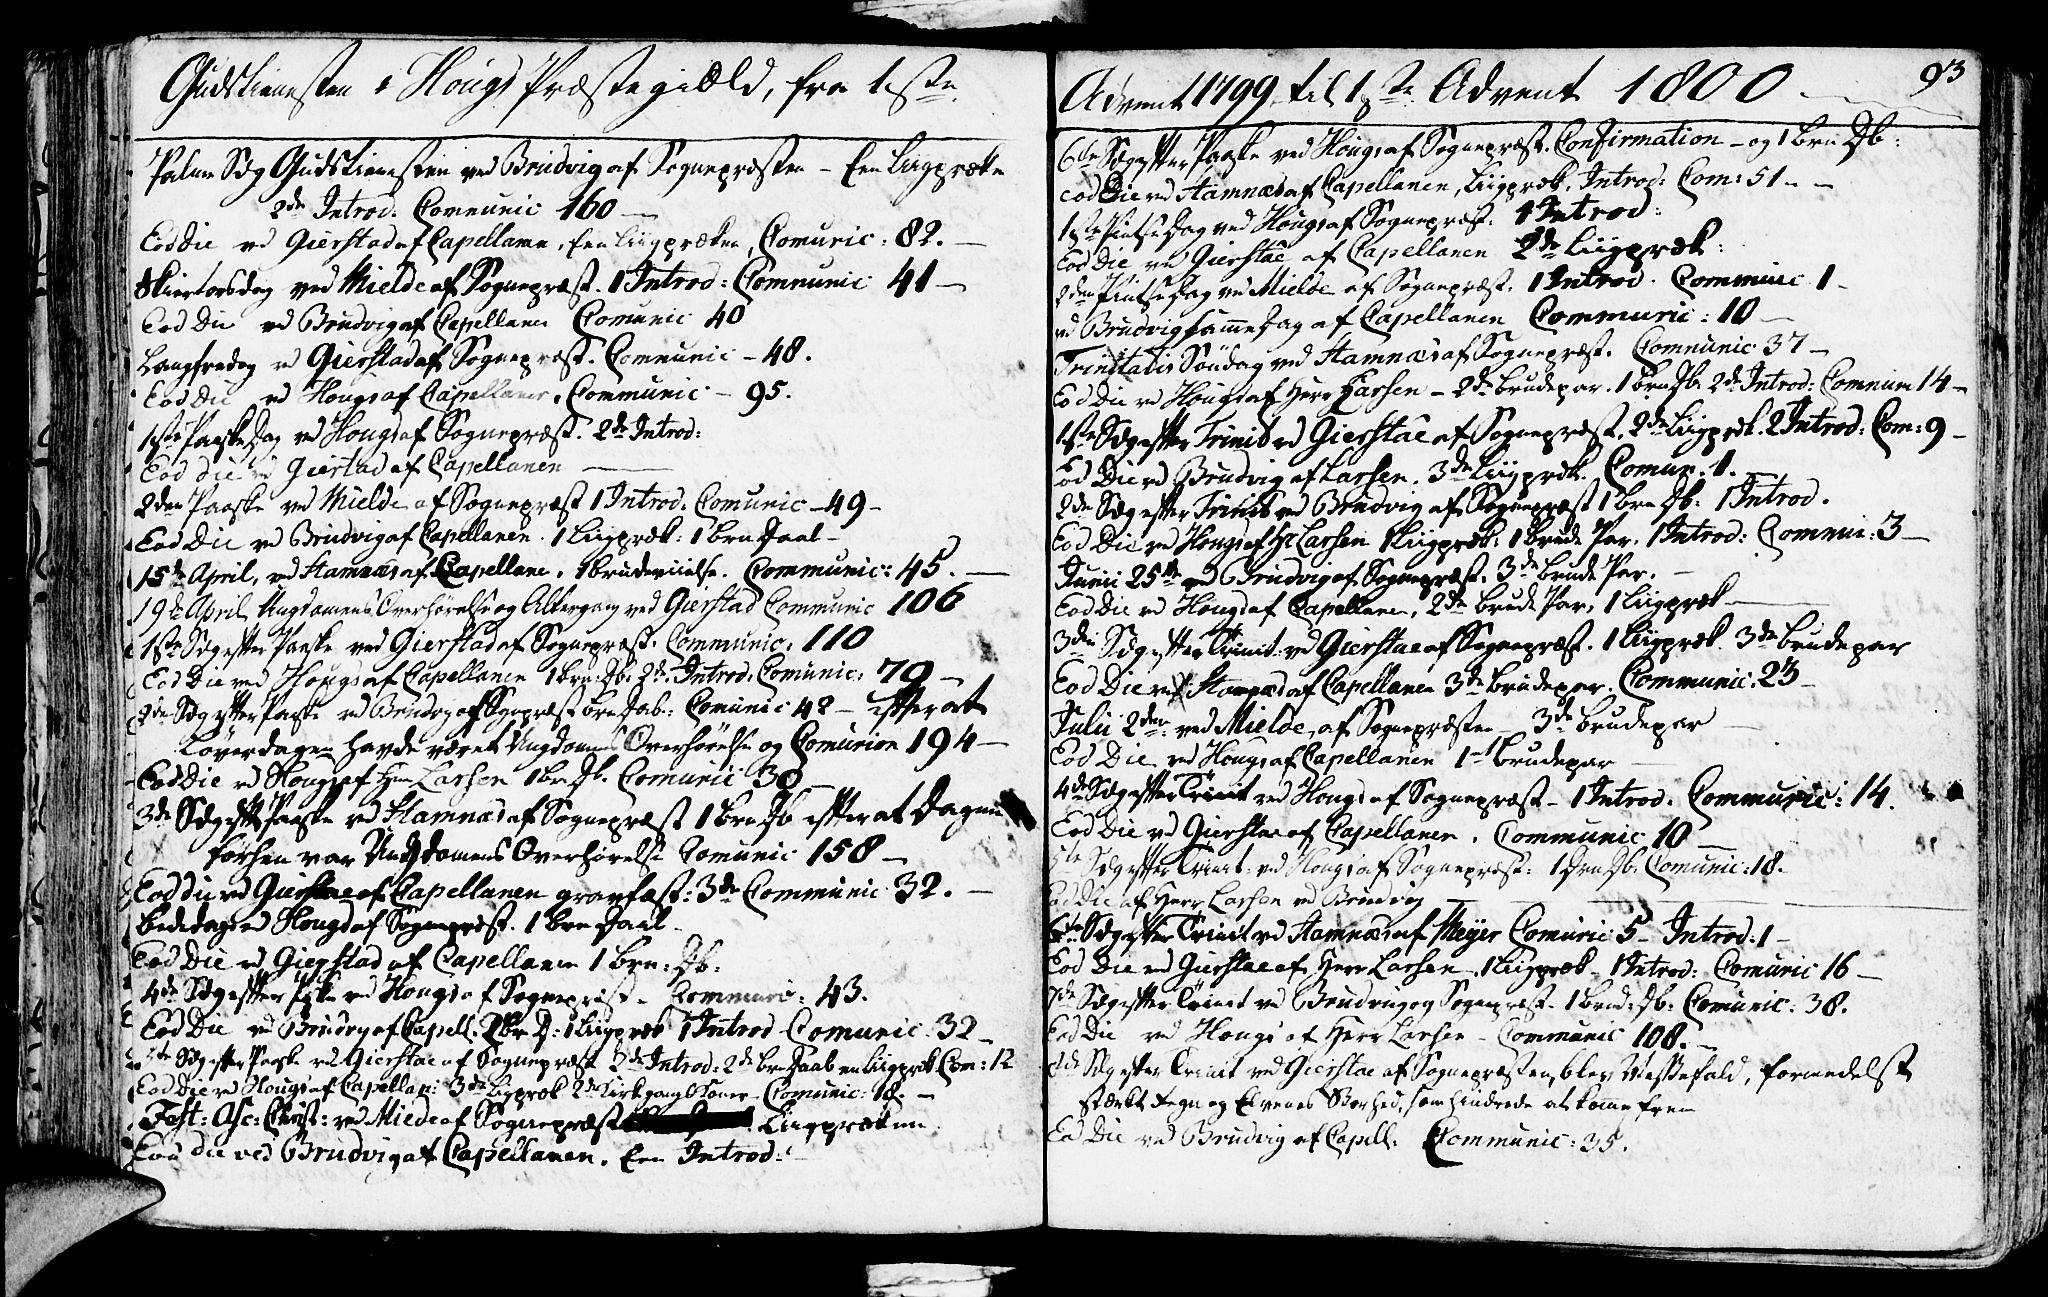 Gudstienesten i Hougs Præstegiæld, fra 1ste
Palme Søg Gudstienesten ved Brudvig af Sognepræsten – Een Liigpræken
2de Introd: Communic 160 —
Eod Die ved Gierstad af Capellanen, Een Liigpræken, Comunic: 82. —
Skiertorsdag ved Mielde af Sognepræst. 1 Introd: Communic 41 —
Eod Die ved Brudvig af Capellanen Comunic 40
Langfredag ved Gierstad af Sognepræst. Communic – 48.
Eod Die ved Hougs af Capellanen, Communic – 95.
1ste Paaske Dag ved Hougs af Sognepræst. 2de Introd:
Eod Die ved Gierstad af Capellanen —
2den Paaske ved Mielde af Sognepræst 1 Introd. Comunic – 49 –
Eod Die ved Brudvig af Capellanen. 1 Liigpræk: 1 Brn Daab –
15de April, ved Stamnæs af Capellane. 1 Brudevielse. Communic: 45. —
19de April, Ungdomens Overhørelse og Altergang ved Gierstad Communic 106
1ste Søg efter Paaske ved Gierstad af Sognepræst. Communic: 110
Eod Die ved Hougs af Capellanen 1 Brn: Db. 2de Introd. Comunic: 70 –
2den Søg efter Paaske ved Brudvig af Sognepræst Brn Daab: Comunic 42 – efter at
Løverdagen havde været Ungdomens Overhørelse og Comunion 194 –
Eod Die ved Hougs af Herr Larsen 1 Brn Db. Comunic 30
3de Søg efter Paaske ved Stamnæs af Sognepræst 1 Brn Db efter at Dagen
forhen var Ungdomens Overhørelse Comunic 158 –
Eod Die ved Gierstad af Capellanen gravfæst: 3de Communic 32. —
Bededag ved Hougs af Sognepræst. 1 Brn Daab –
Eod Die ved Gierstad af Capellanen 1 Brn: Db:
4de Søg efter Paaske ved Hougs af Sognepræst – Communic: 43.
Eod Die ved Brudvig af Capell. 2 Br D: 1 Liigpræk 1 Introd Comunic. 32 –
5te Søg efter Paaske ved Gierstad af Sognepræst 3de Introd: 2de Brn Daab en Liigpræk Com: 12
Eod Die ved Hougs af Capellan: 3de Liigpræk 2de Kirkegangskoner – Comunic: 18. –
Fest: Asc: Christ: ved Mielde af Sognepræst Liigpræken
Eod Die ved Brudvig af Capellanen. Een Introd:
Advent 1799 til 1ste Advent 1800 93
6te Søg efter Paaske ved Hougs af Sognepræst. Confirmation – og 1 Brn Db:
eod Die ved Stamnæs af Capellanen, Liigpræk. Introd: Com: 51 –
1ste Pintse Dag ved Hougs af Sognepræst. 1 Introd:
Eod Die ved Gierstad af Capellanen 2de Liigpræk:
2den Pintse Dag ved Mielde af Sognepræst. 1 Introd. Communic 1 –
ved Brudvig samme Dag af Capellanen Communic: 10 —
Trinitatis Søndag ved Stamnæs af Sognepræst. Communic 37 –
Eod Die ved Hougs af Herr Larsen – 2de Brudepar. 1 Brn Db. 2de Introd: Commun 14 –
1ste Søg efter Trinit ved Gierstad af Sognepræst. 2de Liigpræk. 2 Introd: Com: 9 –
Eod Die ved Brudvig af Larsen. 3de Liigpræk. Comun. 1.
2de Søg efter Trinit ved Brudvig af Sognepræst 1 Brn Db: 1 Introd.
Eod Die ved Hougs af Hr Larsen 1 Liigpræk. 1 Brude Par. 1 Introd: Commun: 3 –
Junii 25de ved Brudvig af Sognepræst. 3de Brude Par. –
Eod Die ved Hougs af Capellanen. 2de Brude Par, 1 Liigpræk —
3die Søg efter Trinit ved Gierstad af Sognepræst. 1 Liigpræk. 3de Brudepar
Eod Die ved Stamnæs af Capellanen 3de Brudepar. Communic: 23 –
Julii 2den ved Mielde, af Sognepræsten – 3de Brudepar
Eod Die ved Hougs af Capellanen 1t Brudepar
4de Søg efter Trinit ved Hougs af Sognepræst – 1 Introd. Communic: 14.
Eod Die ved Gierstad af Capellanen. Communic 10 —
5te Søg efter Trinit: ved Hougs af Sognepræst: 1 Brn Db. Comunic: 18.
Eod Die af Herr Larsen ved Brudvig
6te Søg efter Trinit ved Stamnæs af Meyer Comunic 5 – Introd: 1 –
Eod Die ved Gierstad af Herr Larsen. 1 Liigpræk – 1 Introd: Comunic 16 –
7de Søg efter Trinit ved Brudvig og Sognepræst. 1 Brud: Db: Comunic: 38.
Eod Die ved Hougs af Herr Larsen – Communic 108. –
8de Søg efter Trinit ved Gierstad af Sognepræsten, blev Messefald, formedelst
stærkt Regn og Elvenes Storhed, som hindrede at komme frem
Eod Die ved Brudvig af Capell: Communic: 35.